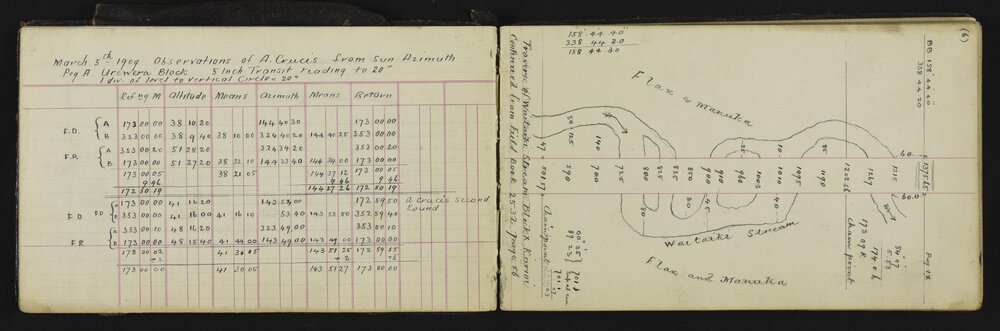 March 5th 1909 Observations of A. Crucis from Sun Azimuth
Peg A Urewera Block 5 Inch Transit reading to 20"
1 div. of level to vertical Circle = 20"
Ref by M Altitude Means Azimuth Means Return
F.D. A 173 00 00 38 10 20 144 40 30 173 00 00
B 353 00 00 38 9 40 38 10 00 324 40 20 144 40 25 353 00 00
F.R A 353 00 20 51 28 20 324 34 20 353 00 20
B 173 00 00 51 27 20 38 32 10 144 33 40 144 34 00 173 00 00
173 00 05 38 21 05 144 37 12 173 00 05
9 46 9 46 9 46
172 50 19 144 27 26 172 50 19
A 173 00 00 41 14 20 143 54 00 172 59 50 A crucis second
round
F D B 353 00 00 41 16 00 41 16 10 53 40 143 53 50 352 59 40
A 353 00 10 48 16 20 323 49 00 353 00 10
F.R B 173 00 00 48 15 40 41 44 00 143 49 00 143 49 00 173 00 00
173 00 02 41 30 05 143 51 25 172 59 55
-2 +2 +5
173 00 00 41 30 05 143 51 27 173 00 00
158 44 40
338 44 20
158 44 30
(6)
BB 158 44 40
338 44 20
Traverse of Waitaiki Stream Block X Karioi
Continued from Field Book 2532 page 56
Flax & Manuka
47 501.57 chainpoint
590
700
725
800
825
835
850
900
910
960
1003
1010
1095
1190
1205.56 chain point
1267
1315
1375.65
30 125
140
80
20
45
25
10
40
85
60
60
Waitaiki Stream
Flax and Manuka
173 09 R
174 06
Peg IX